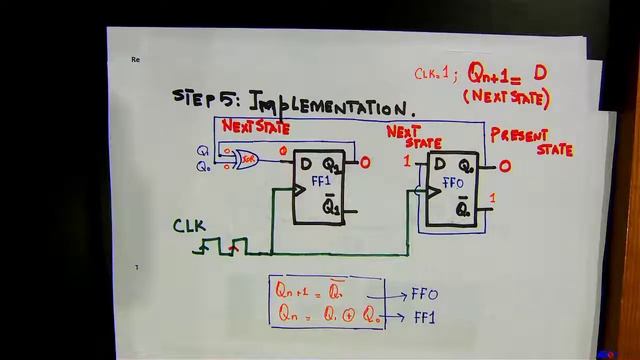 Re
CLK=1; Qn+1 = D
(NEXT STATE)
STEP 5: IMPLEMENTATION.
NEXT STATE
NEXT STATE
PRESENT STATE
Q1 0
Q0 0
XOR
0
D Q1
0
FF1
Q̅1
1
D Q0
0
FF0
Q̅0
1
CLK
Qn+1 = Q̅0 → FF0
Qn = Q1 ⊕ Q0 → FF1